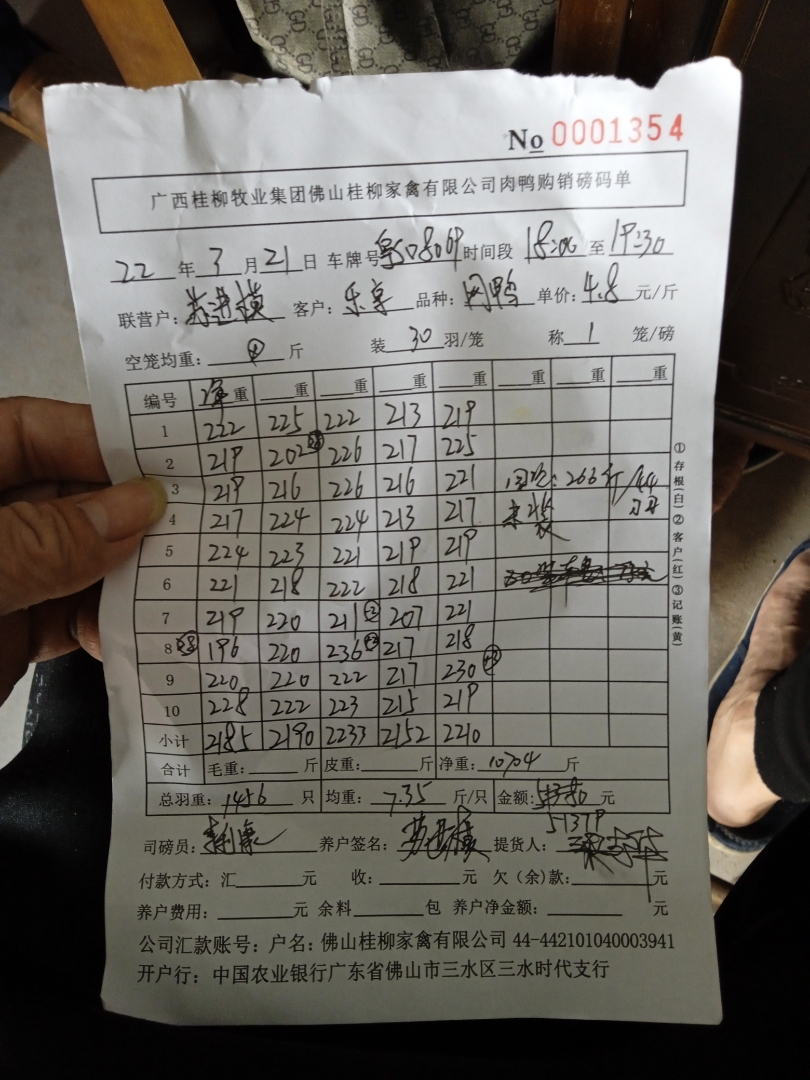 No 0001354
广西桂柳牧业集团佛山桂柳家禽有限公司肉鸭购销磅码单
22 年 3 月 21 日 车牌号 08069 时间段 18:00 至 19:30
联营户: 客户: 乐享 品种: 鸭 单价: 4.8 元/斤
空笼均重: 斤 装 30 羽/笼 称 1 笼/磅
编号 净重 重 重 重 重 重 重 重
1 222 225 222 213 219
2 219 202 28 226 217 225
3 219 216 226 216 221 : 266斤/44
4 217 224 224 213 217 未装
5 224 223 221 219 219
6 221 218 222 218 221
7 219 220 211 207 221
8 28 196 220 236 217 218
9 220 220 222 217 230
10 228 222 223 215 219
小计 2185 2190 2233 2152 2210
合计 毛重: 斤 皮重: 斤 净重: 10704 斤
总羽重: 1456 只 均重: 7.35 斤/只 金额: 元
51379
司磅员: 养户签名: 提货人:
付款方式: 汇 元 收: 元 欠(余)款: 元
养户费用: 元 余料 包 养户净金额: 元
公司汇款账号: 户名: 佛山桂柳家禽有限公司 44-442101040003941
开户行: 中国农业银行广东省佛山市三水区三水时代支行
①存根(白)②客户(红)③记账(黄)